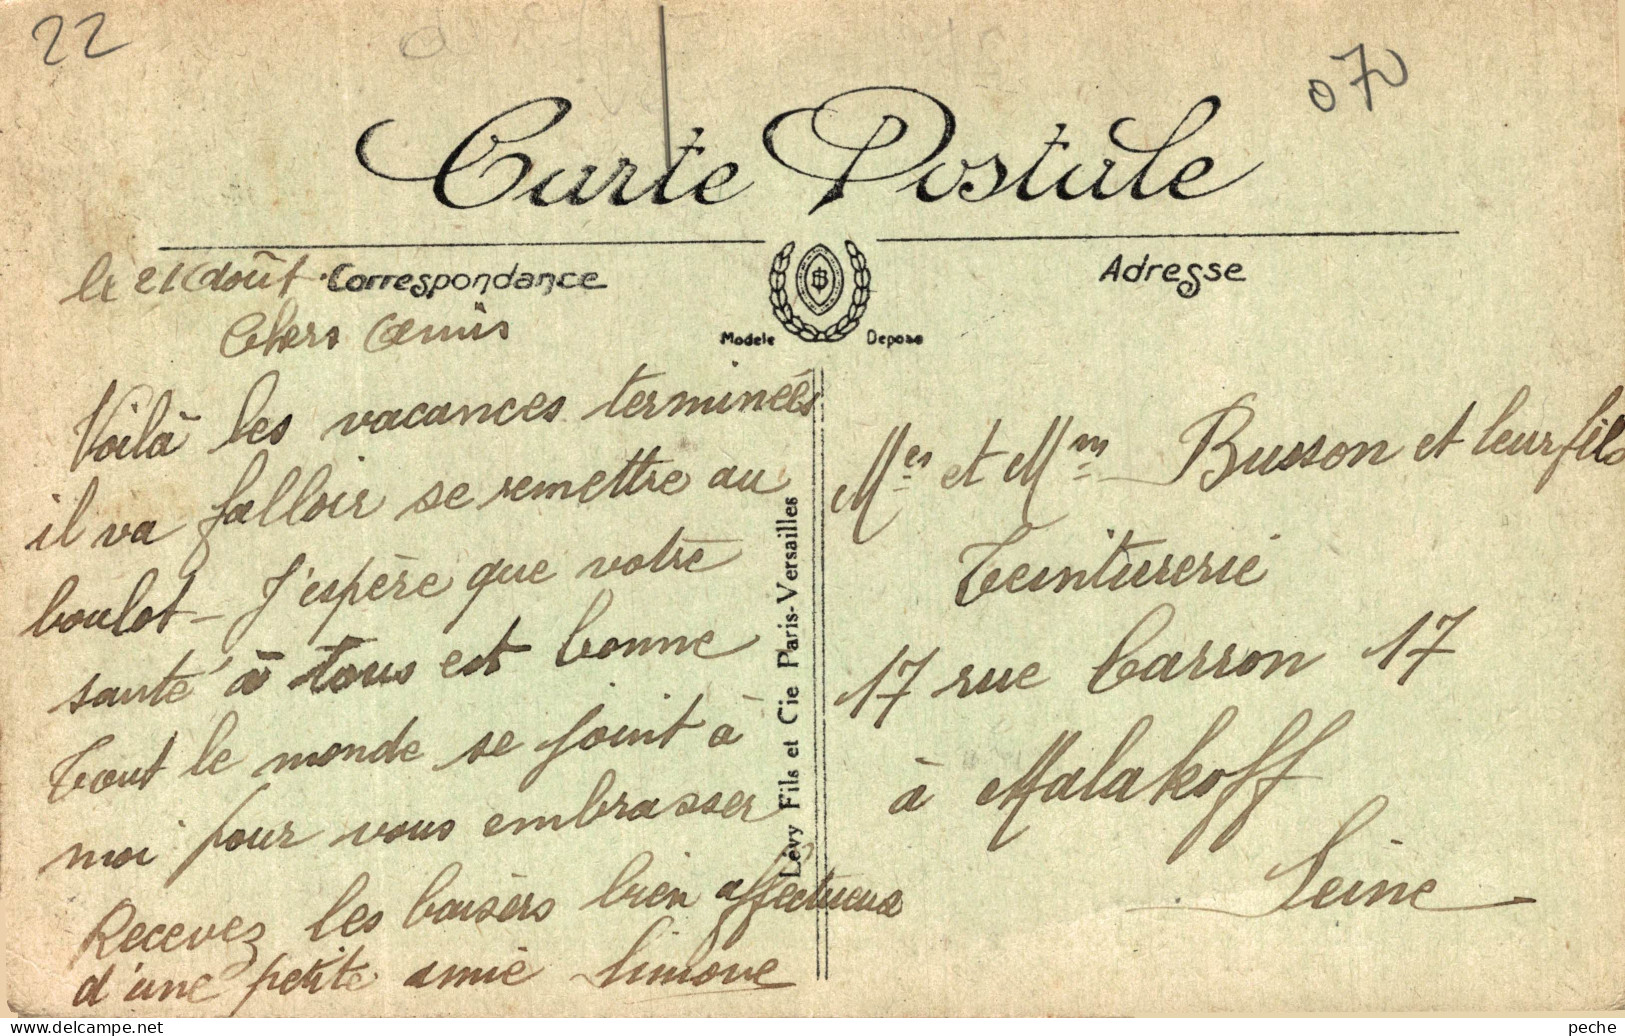 22
070
Carte Postale
Correspondance
Adresse
Modèle Déposé
le 21 Août
Chers Amis
Voilà les vacances terminées
il va falloir se remettre au
boulot - J'espère que votre
santé à tous est bonne
Tout le monde se joint à
moi pour vous embrasser
Recevez les baisers bien affectueux
d'une petite amie Simone
Lévy Fils et Cie Paris-Versailles
Mes et Mm Busson et leur fils
Teinturerie
17 rue Carron 17
à Malakoff
Seine
www.delcampe.net
peche